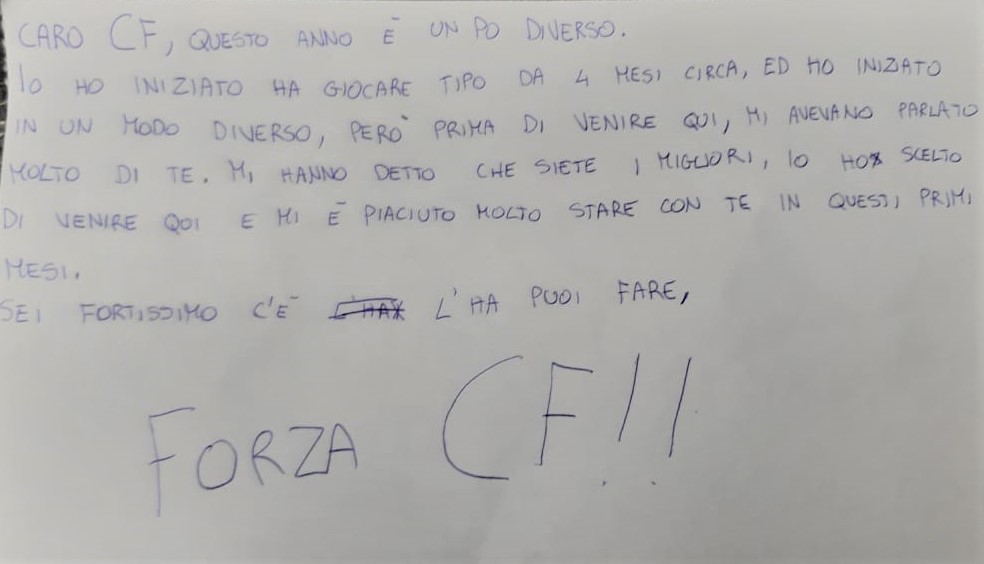 CARO CF, QUESTO ANNO È UN PO DIVERSO.
IO HO INIZIATO HA GIOCARE TIPO DA 4 MESI CIRCA, ED HO INIZATO
IN UN MODO DIVERSO, PERÒ PRIMA DI VENIRE QUI, MI AVEVANO PARLATO
MOLTO DI TE. MI HANNO DETTO CHE SIETE I MIGLIORI, IO HO SCELTO
DI VENIRE QUI E MI È PIACIUTO MOLTO STARE CON TE IN QUESTI PRIMI
MESI.
SEI FORTISSIMO C'È L'HA PUOI FARE,
FORZA CF!!